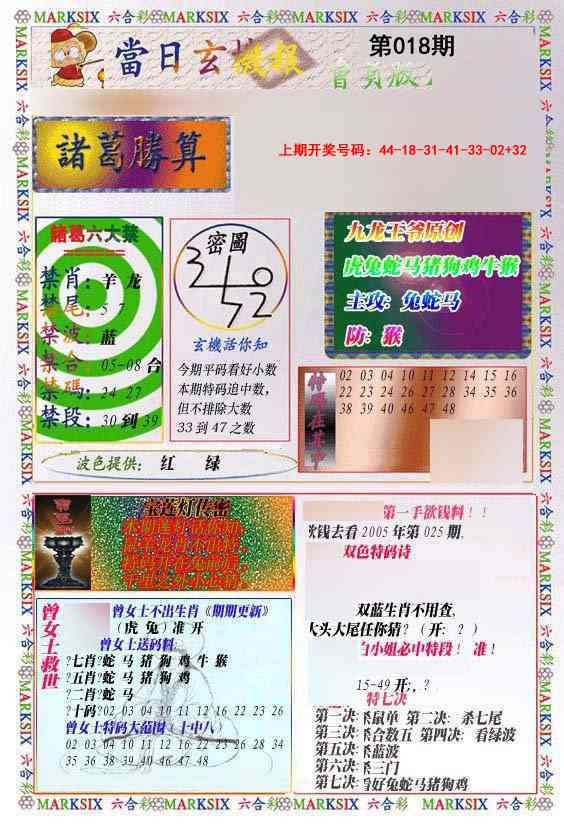 MARKSIX 六合彩 MARKSIX 六合彩 MARKSIX 六合彩 MARKSIX 六合彩
當日玄機報
第018期
會員版
諸葛勝算
上期开奖号码：44-18-31-41-33-02+32
諸葛六大禁
禁肖：羊 龙
禁尾：5 7
禁波：蓝
禁合：05-08 合
禁碼：24 27
禁段：30 到 39
密圖
玄機話你知
今期平码看好小数
本期特码追中数，
但不排除大数
33 到 47 之数
九龙王爷原创
虎兔蛇马猪狗鸡牛猴
主攻：兔蛇马
防：猴
特碼在其中
02 03 04 10 11 12 14 15 16
22 23 24 26 27 28 34 35 36
38 39 40 46 47 48
波色提供： 红 绿
宝莲灯传密
曾女士救世
曾女士不出生肖《期期更新》
（虎 兔）准 开
曾女士送码料:
?七肖?蛇 马 猪 狗 鸡 牛 猴
?五肖?蛇 马 猪 狗 鸡
?二肖?蛇 马
?十码?02 03 04 10 11 12 16 22 23 26
曾女士特码大范围（十中八）
02 03 04 10 11 12 16 22 23 26 28 34
35 36 38 39 40 46 47 48
第一手欲钱料！！
欲钱去看 2005 年第 025 期,
双色特码诗
双蓝生肖不用查,
大头大尾任你猜？（开：？）
白小姐必中特段！ 准！
15-49 开:，?
特七决
第一决:杀鼠单 第二决: 杀七尾
第三决:杀合数五 第四决: 看绿波
第五决:杀蓝波
第六决:杀三门
第七决:看好兔蛇马猪狗鸡
MARKSIX 六合彩 MARKSIX 六合彩 MARKSIX 六合彩 MARKSIX 六合彩